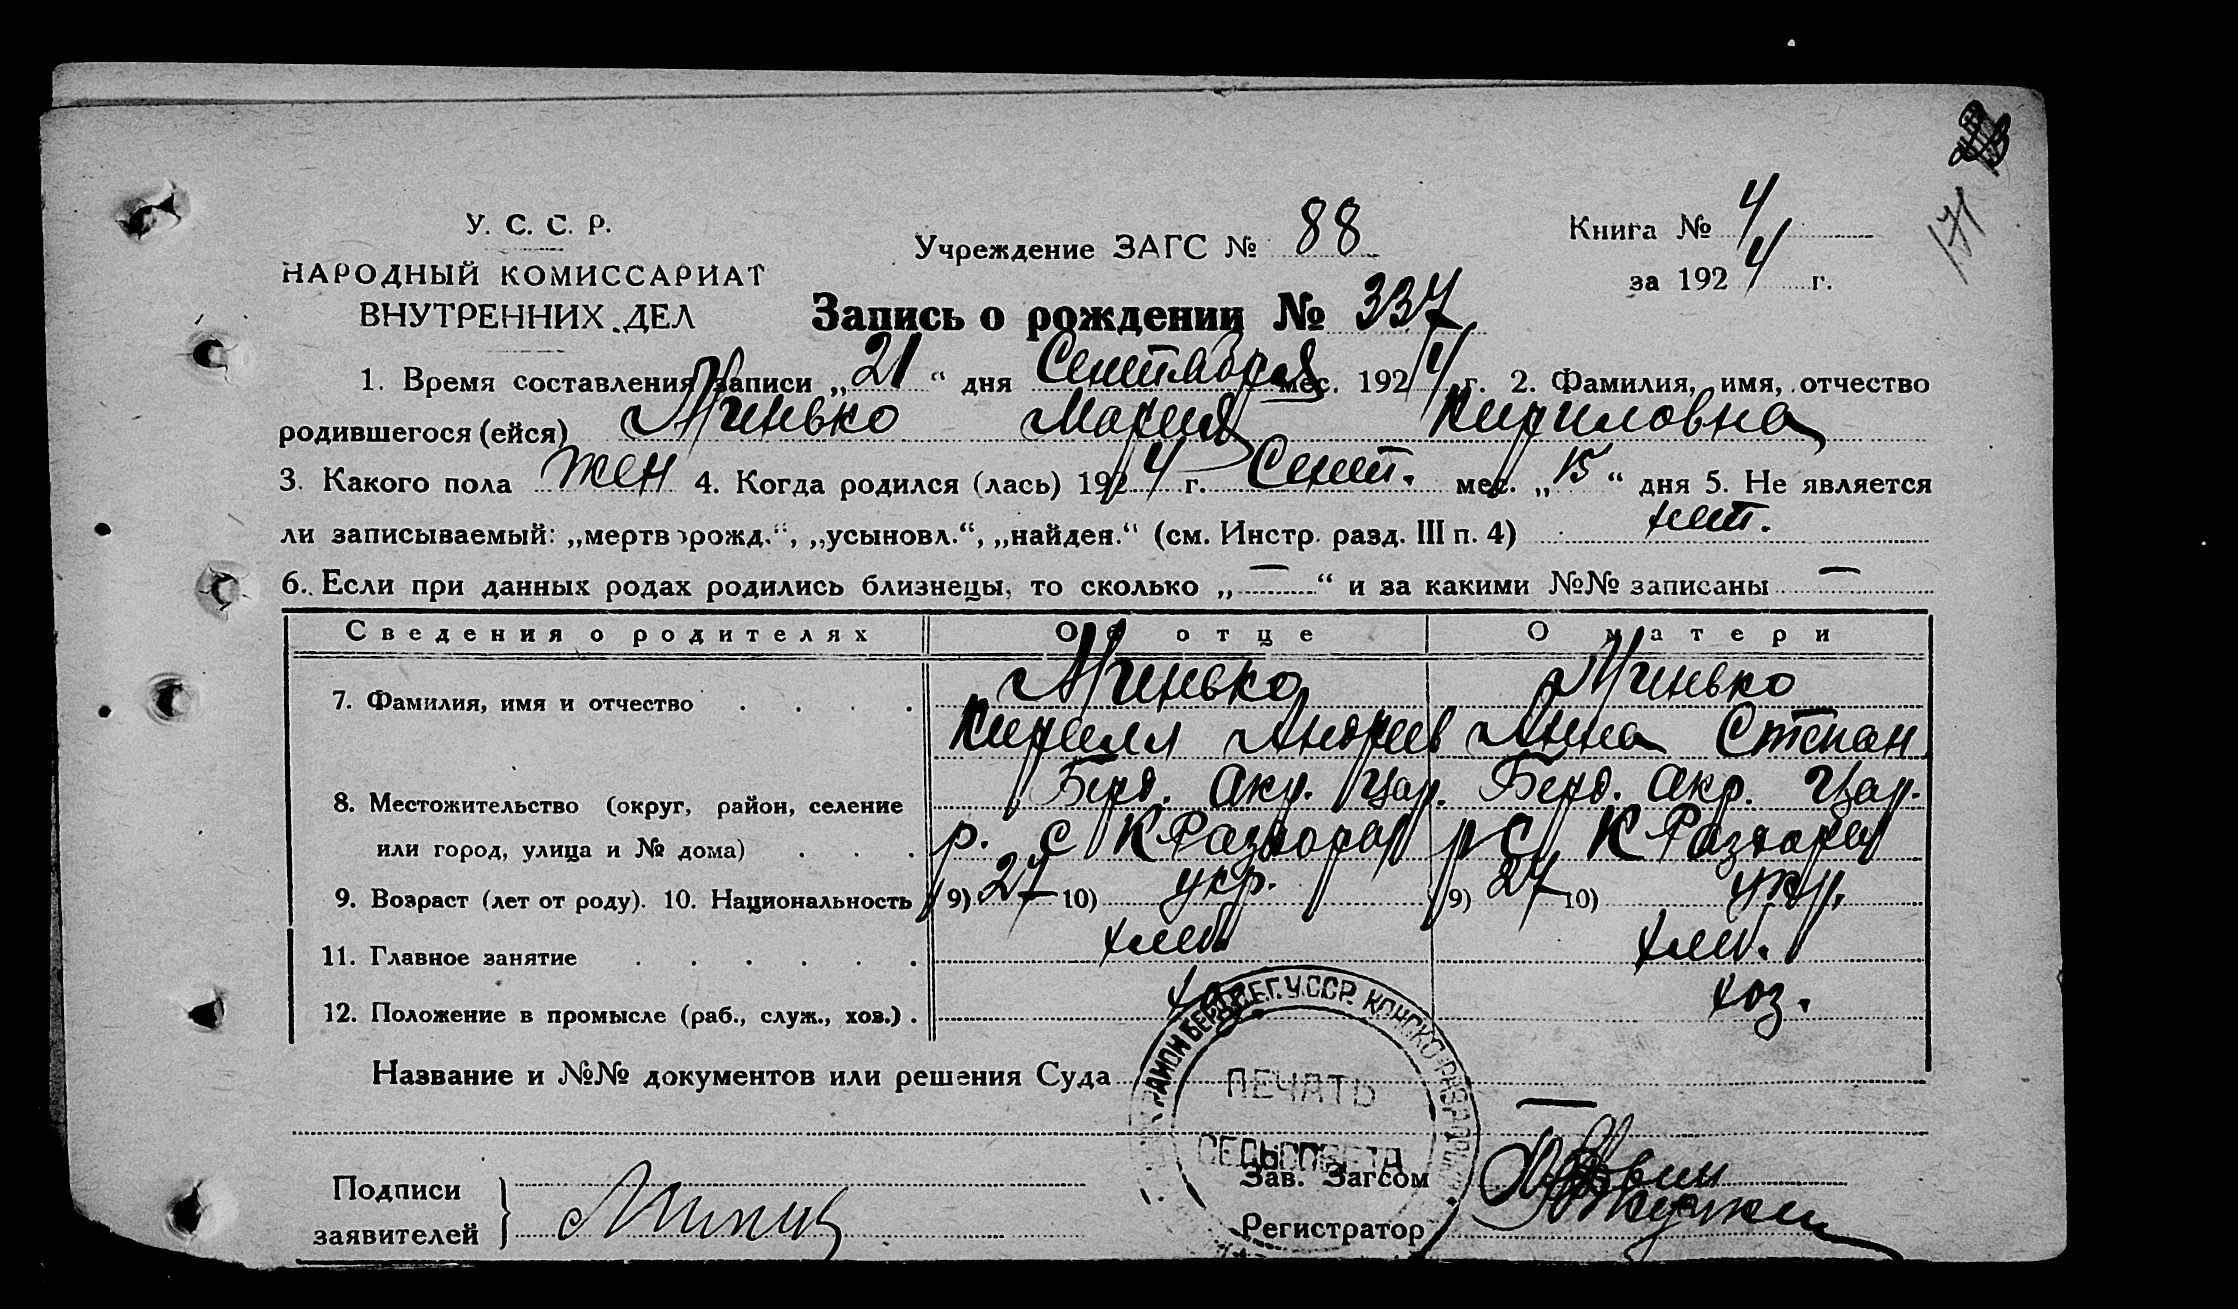 171
У. С. С. Р.
НАРОДНЫЙ КОМИССАРИАТ
ВНУТРЕННИХ ДЕЛ
Учреждение ЗАГС № 88
Книга № 4
за 1924 г.
Запись о рождении № 337
1. Время составления записи „21“ дня Сентября мес. 1924 г. 2. Фамилия, имя, отчество
родившегося (ейся) Минько Мария Кириловна
3. Какого пола жен 4. Когда родился (лась) 1924 г. Сент. мес. „15“ дня 5. Не является
ли записываемый: „мертворожд.“, „усыновл.“, „найден.“ (см. Инстр. разд. III п. 4) нет.
6. Если при данных родах родились близнецы, то сколько „—“ и за какими №№ записаны —
Сведения о родителях Об отце О матери
7. Фамилия, имя и отчество Минько Минько
Кирилл Андреев Анна Степан
8. Местожительство (округ, район, селение Берд. Окр. Цар. Берд. Окр. Цар.
или город, улица и № дома) р. с К Раздоры р с К Раздоры
9. Возраст (лет от роду). 10. Национальность 9) 27 10) укр. 9) 27 10) укр.
11. Главное занятие хлеб. хлеб.
12. Положение в промысле (раб., служ., хоз.) хоз. хоз.
Название и №№ документов или решения Суда —
ПЕЧАТЬ
СЕЛЬСОВЕТА
Подписи
заявителей
Зав. Загсом
Регистратор